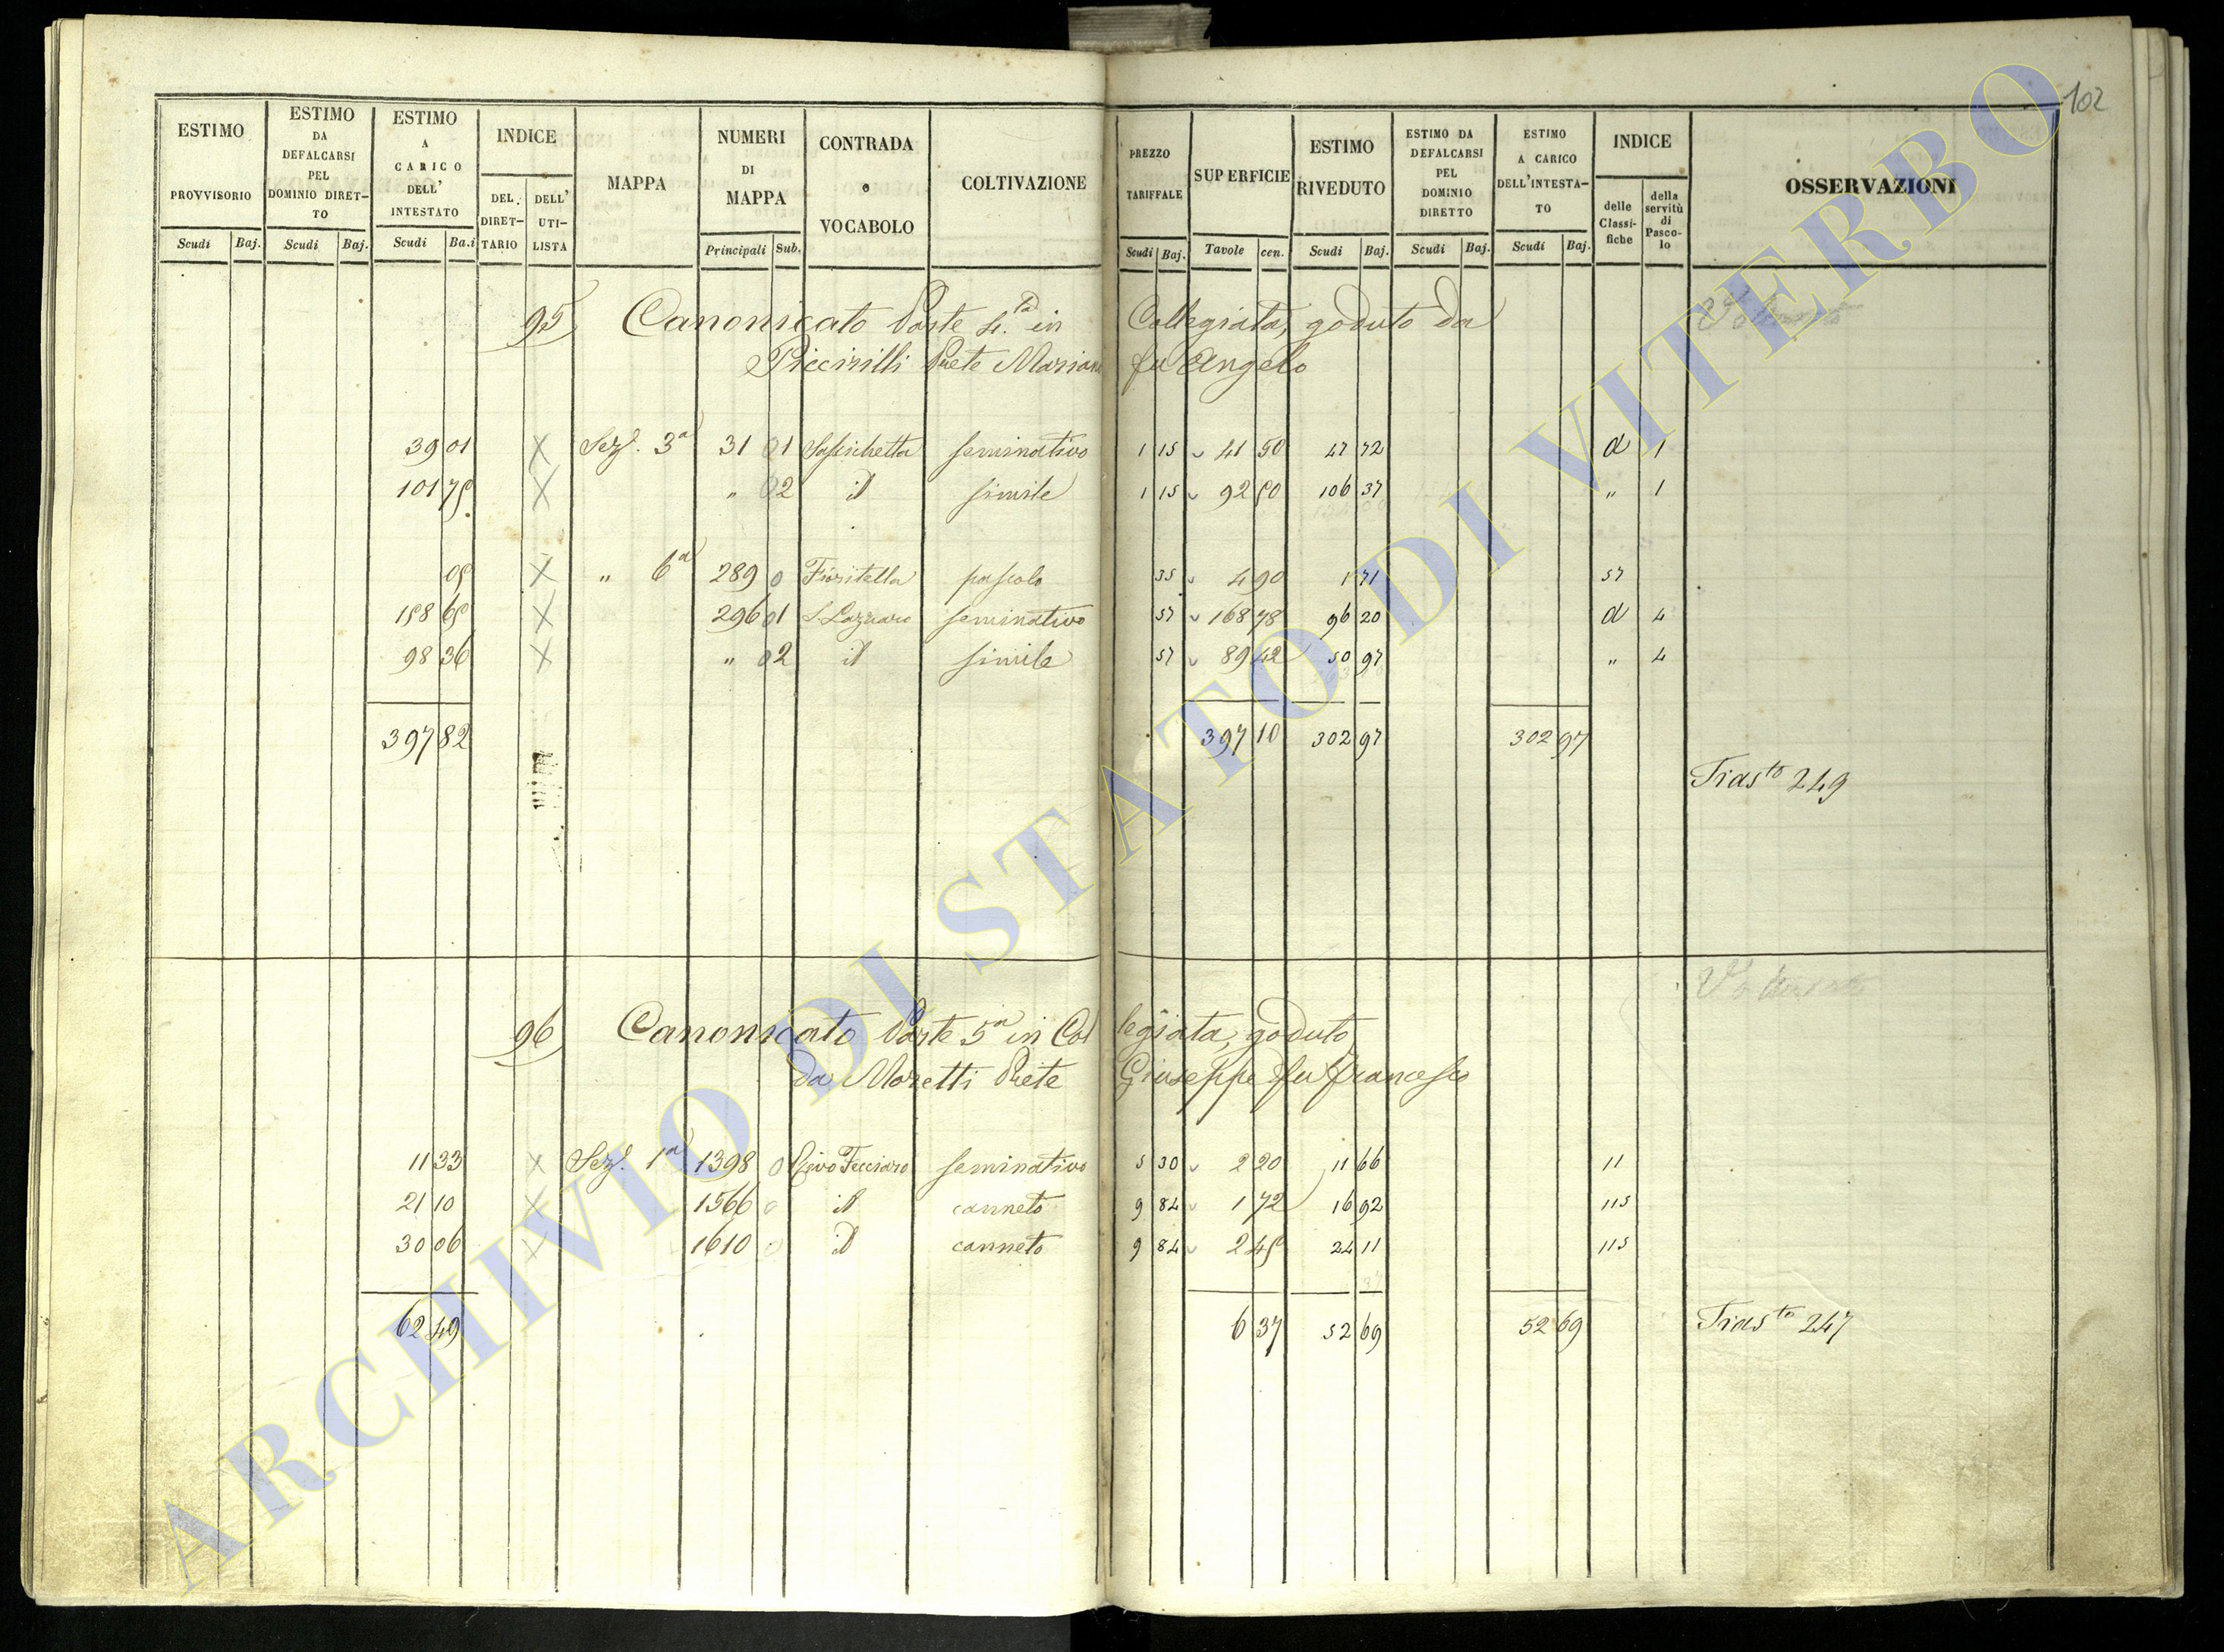 102
ESTIMO PROVVISORIO | ESTIMO DA DEFALCARSI PEL DOMINIO DIRET-TO | ESTIMO A CARICO DELL' INTESTATO | INDICE | MAPPA | NUMERI DI MAPPA | CONTRADA o VOCABOLO | COLTIVAZIONE | PREZZO TARIFFALE | SUPERFICIE | ESTIMO RIVEDUTO | ESTIMO DA DEFALCARSI PEL DOMINIO DIRETTO | ESTIMO A CARICO DELL'INTESTA-TO | INDICE | OSSERVAZIONI
DEL DIRET-TARIO | DELL' UTI-LISTA | delle Classi-fiche | della servitù di Pasco-lo
Scudi | Baj. | Scudi | Baj. | Scudi | Ba.i | Principali | Sub. | Scudi | Baj. | Tavole | cen. | Scudi | Baj. | Scudi | Baj. | Scudi | Baj.
95 Canonicato Parte 4.ta in Collegiata, goduto da
Piccirilli Prete Mariano fu Angelo
39 01 X Sez. 3a 31 01 seminativo 1 15 41 50 47 72 d 1
101 75 X " 02 id simile 1 15 92 50 106 37 " 1
05 X " 6a 289 0 Fioritella pascolo 35 4 90 1 71 57
158 65 X 296 01 S. Lazzaro seminativo 57 168 78 96 20 d 4
98 36 X " 02 id simile 57 89 42 50 97 " 4
397 82 397 10 302 97 302 97
Trasto 249
96 Canonicato Parte 5a in Collegiata, goduto
da Moretti Prete Giuseppe fu Francesco
11 33 X Sez. 1a 1398 0 seminativo 5 30 2 20 11 66 11
21 10 X 1566 0 id canneto 9 84 1 72 16 92 115
30 06 X 1610 0 id canneto 9 84 2 45 24 11 115
62 49 6 37 52 69 52 69
Trasto 247
ARCHIVIO DI STATO DI VITERBO